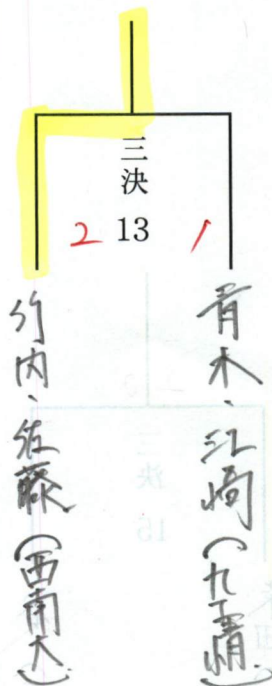 三決
2 13 1
青木、江崎(九工情)
竹内、佐藤(西南大)